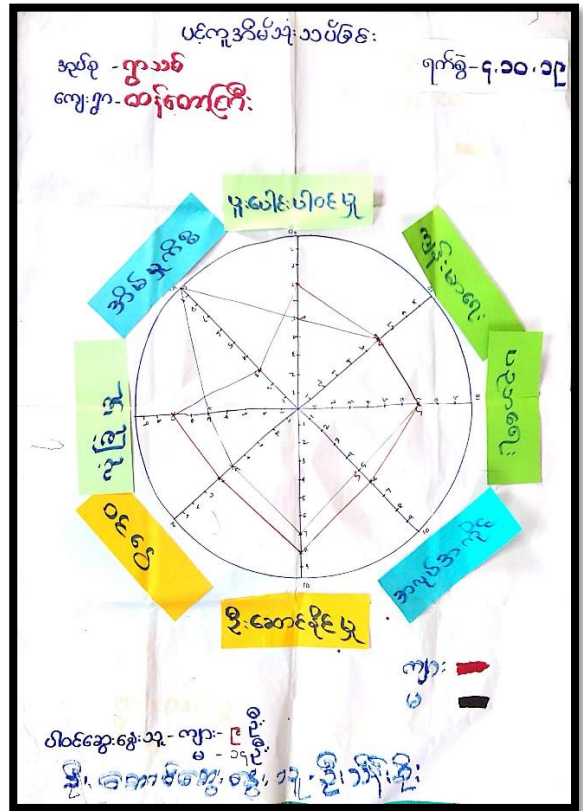 ပင့်ကူအိမ်သုံးသပ်ခြင်း
အုပ်စု - ရွာသစ်
ကျေးရွာ - ထန်တောကြီး
ရက်စွဲ - ၄.၁၀.၁၉
ပူးပေါင်းပါဝင်မှု
ကျန်းမာရေး
ပညာရေး
အလုပ်အကိုင်
ဦးဆောင်နိုင်မှု
ဝင်ငွေ
လုံခြုံမှု
အိမ်မှုကိစ္စ
ကျား
မ
ပါဝင်ဆွေးနွေးသူ - ကျား - ၉ ဦး
မ - ၁၄ ဦး
ဦးဆောင်ဆွေးနွေးသူ - ဦးသိန်းစိုး